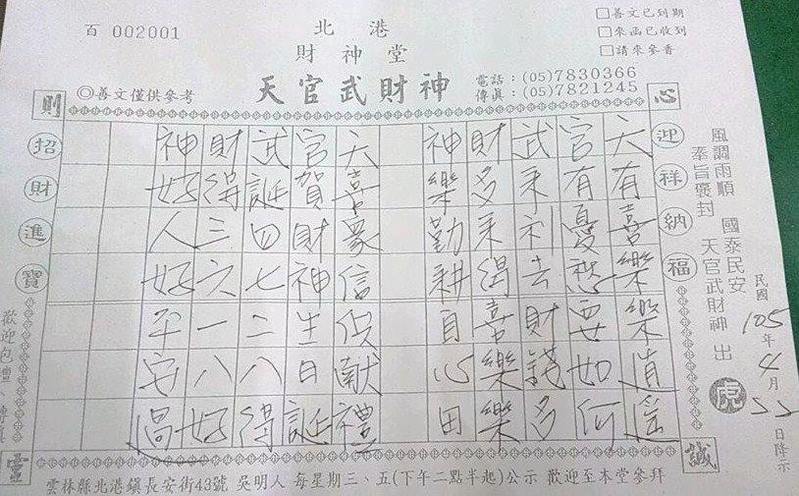 百 002001
北港
財神堂
天官武財神
◎善文僅供參考
電話：(05)7830366
傳眞：(05)7821245
□善文已到期
□來函已收到
□請來參香
心迎祥納福誠
風調雨順 國泰民安
奉旨褒封 天官武財神 出
虎
民國105年4月22日降示
天有喜樂樂逍遙
官有憂愁要如何
武来利去財錢多
財多来得喜樂樂
神樂勤耕自心田
天喜眾信供献禮
官賀財神生日誕
武誕四七二八得
財得三六一八好
神好人好平安過
則招財進寶靈
雲林縣北港鎮長安街43號 吳明人 每星期三、五(下午二點半起)公示 歡迎至本堂參拜